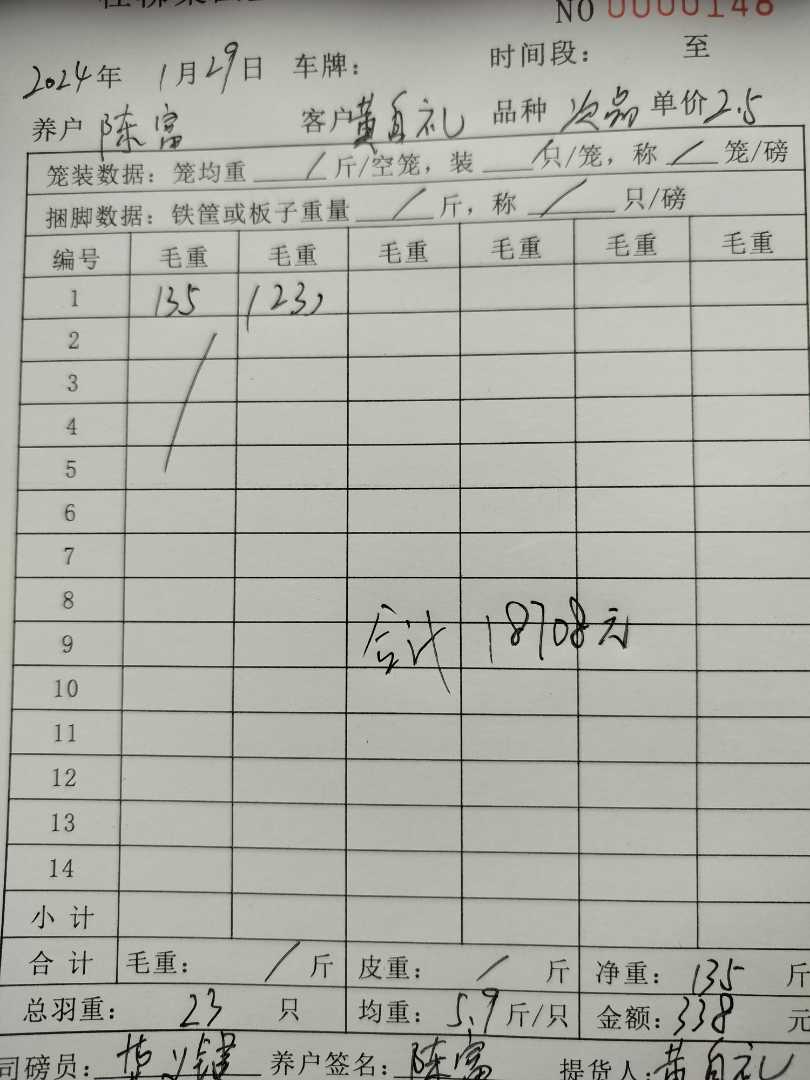 NO 0000148
2024年 1月29日 车牌： 时间段： 至
养户 陈富 客户 黄自礼 品种 次品 单价 2.5
笼装数据：笼均重 / 斤/空笼，装 / 只/笼，称 / 笼/磅
捆脚数据：铁筐或板子重量 / 斤，称 / 只/磅
编号 毛重 毛重 毛重 毛重 毛重 毛重
1 135 (23)
2
3
4
5
6
7
8
合计 18708元
9
10
11
12
13
14
小计
合计 毛重： / 斤 皮重： / 斤 净重： 135 斤
总羽重： 23 只 均重： 5.9 斤/只 金额： 338 元
司磅员： 养户签名： 陈富 提货人： 黄自礼